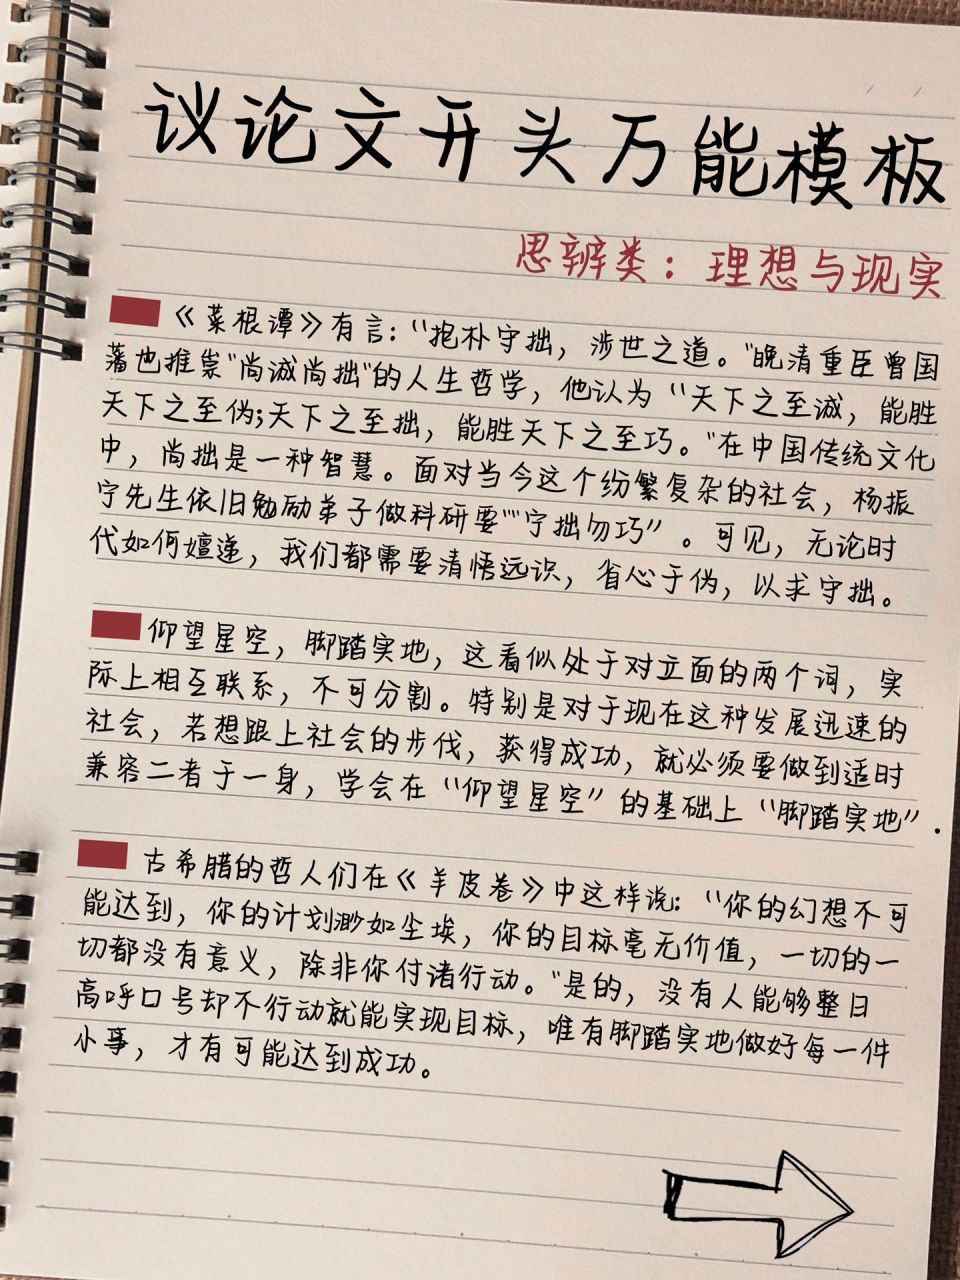 议论文开头万能模板
思辨类：理想与现实
《菜根谭》有言："抱朴守拙，涉世之道。"晚清重臣曾国
藩也推崇"尚诚尚拙"的人生哲学，他认为"天下之至诚，能胜
天下之至伪;天下之至拙，能胜天下之至巧。"在中国传统文化
中，尚拙是一种智慧。面对当今这个纷繁复杂的社会，杨振
宁先生依旧勉励弟子做科研要""宁拙勿巧"。可见，无论时
代如何嬗递，我们都需要清悟远识，省心于伪，以求守拙。
仰望星空，脚踏实地，这看似处于对立面的两个词，实
际上相互联系，不可分割。特别是对于现在这种发展迅速的
社会，若想跟上社会的步伐，获得成功，就必须要做到适时
兼容二者于一身，学会在"仰望星空"的基础上"脚踏实地".
古希腊的哲人们在《羊皮卷》中这样说："你的幻想不可
能达到，你的计划渺如尘埃，你的目标毫无价值，一切的一
切都没有意义，除非你付诸行动。"是的，没有人能够整日
高呼口号却不行动就能实现目标，唯有脚踏实地做好每一件
小事，才有可能达到成功。